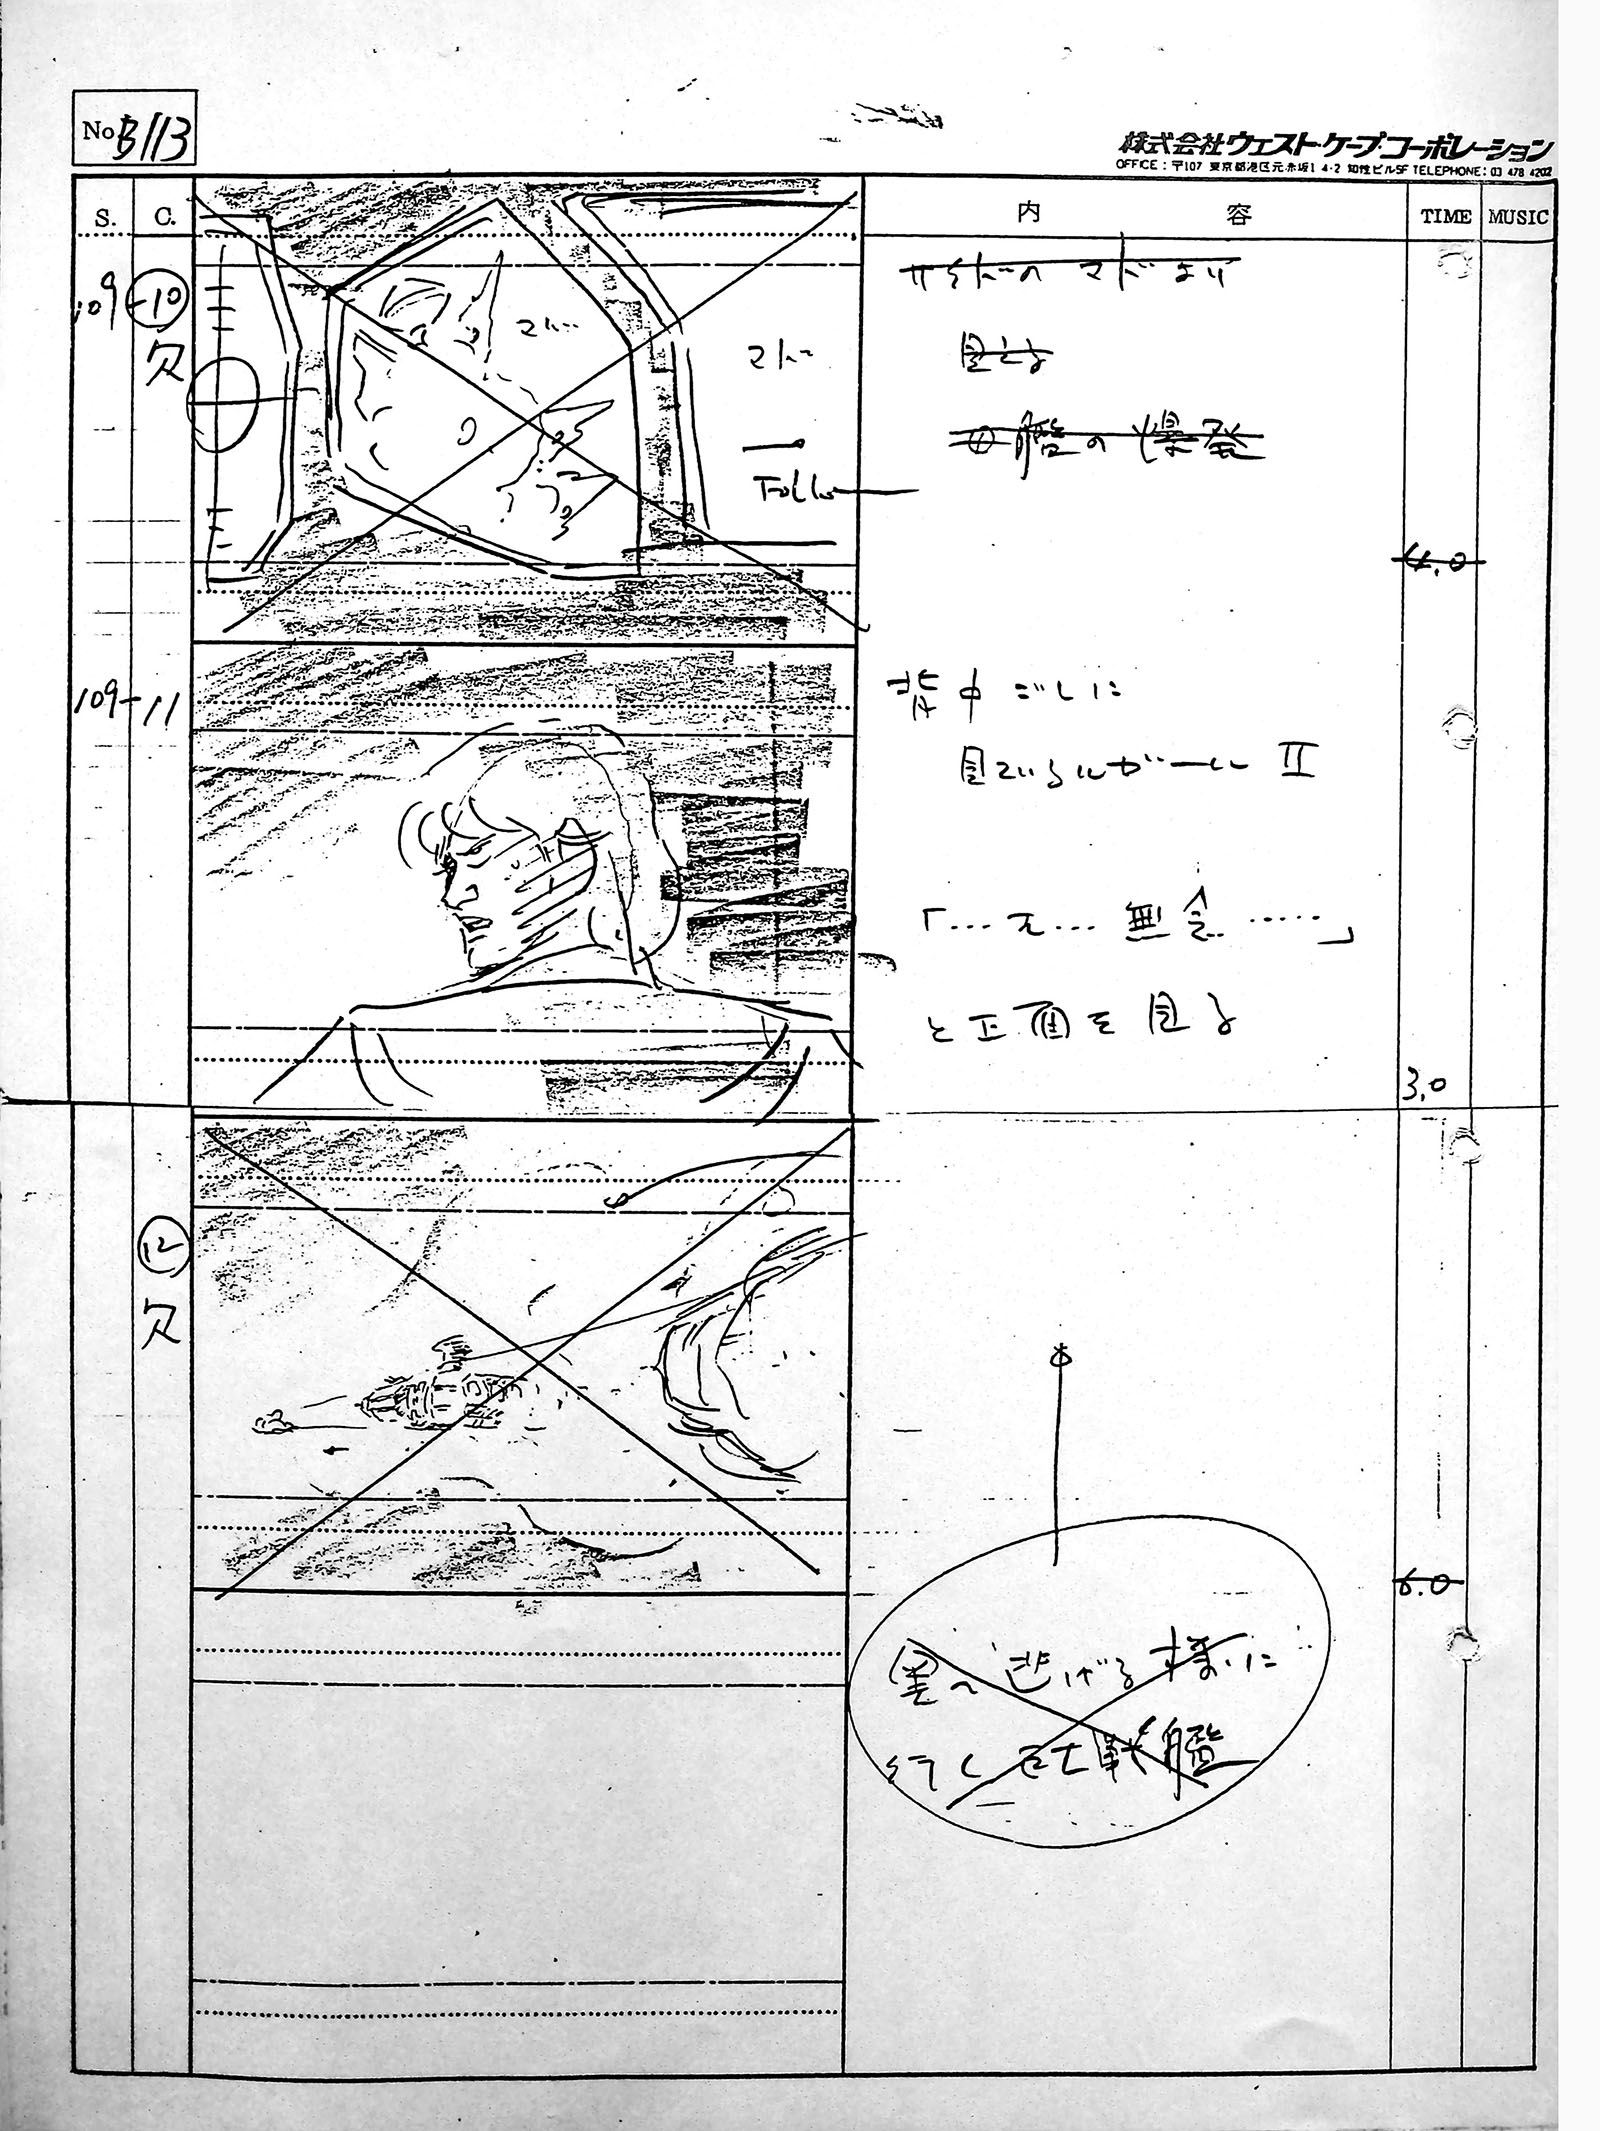 No B113
株式会社ウェスト・ケープ・コーポレーション
OFFICE：〒107 東京都港区元赤坂1 4-2 知性ビル5F TELEPHONE：03 478 4202
S. C. 内 容 TIME MUSIC
109 -10
欠
マド
マド
Follow
のマドより
見える
艦の爆発
4.0
109-11
背中ごしに
見ているルガールII
「…元…無念……」
と正面を見る
3.0
12
欠
6.0
逃げる様に
行く巨大戦艦